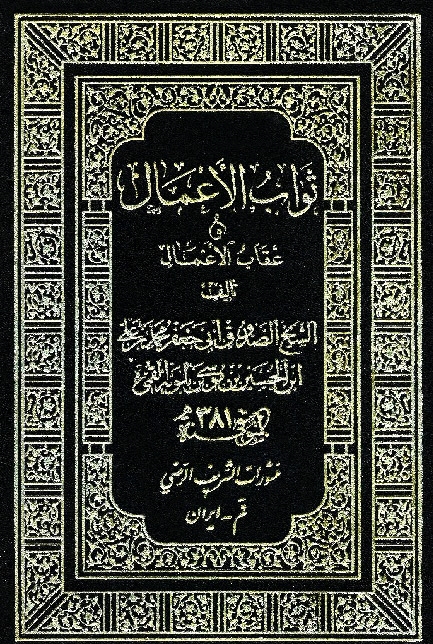 ثَوَابُ الْأَعْمَال
وَ
عِقَابُ الْأَعْمَال
تأليف
الشيخ الصدوق أبي جعفر محمد بن علي
ابن الحسين بن موسى بن بابويه القمي
المتوفى سنة ٣٨١ هـ
منشورات الشريف الرضي
قم - ايران